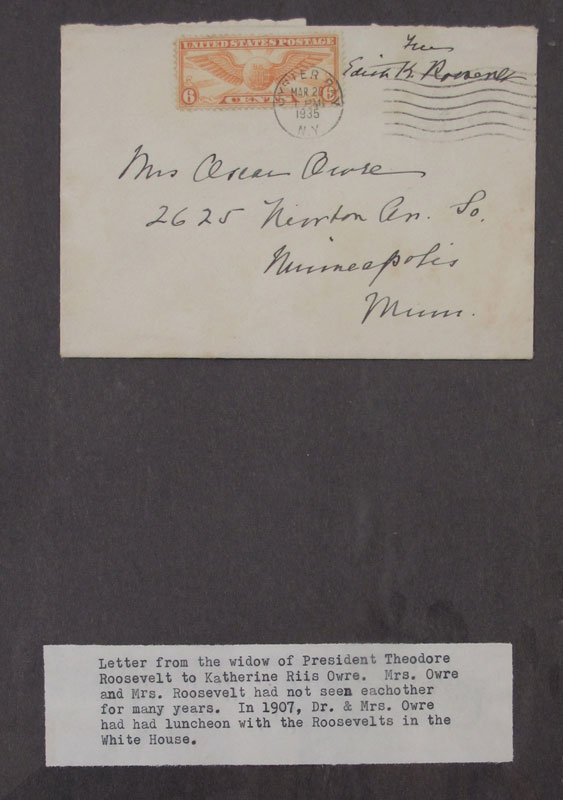 UNITED STATES POSTAGE
6 CENTS 6
OYSTER BAY
MAR 20
PM
1935
N.Y.
Free
Edith K. Roosevelt
Mrs Oscar Owre
2625 Newton Av. So.
Minneapolis
Minn.
Letter from the widow of President Theodore
Roosevelt to Katherine Riis Owre. Mrs. Owre
and Mrs. Roosevelt had not seen eachother
for many years. In 1907, Dr. & Mrs. Owre
had had luncheon with the Roosevelts in the
White House.